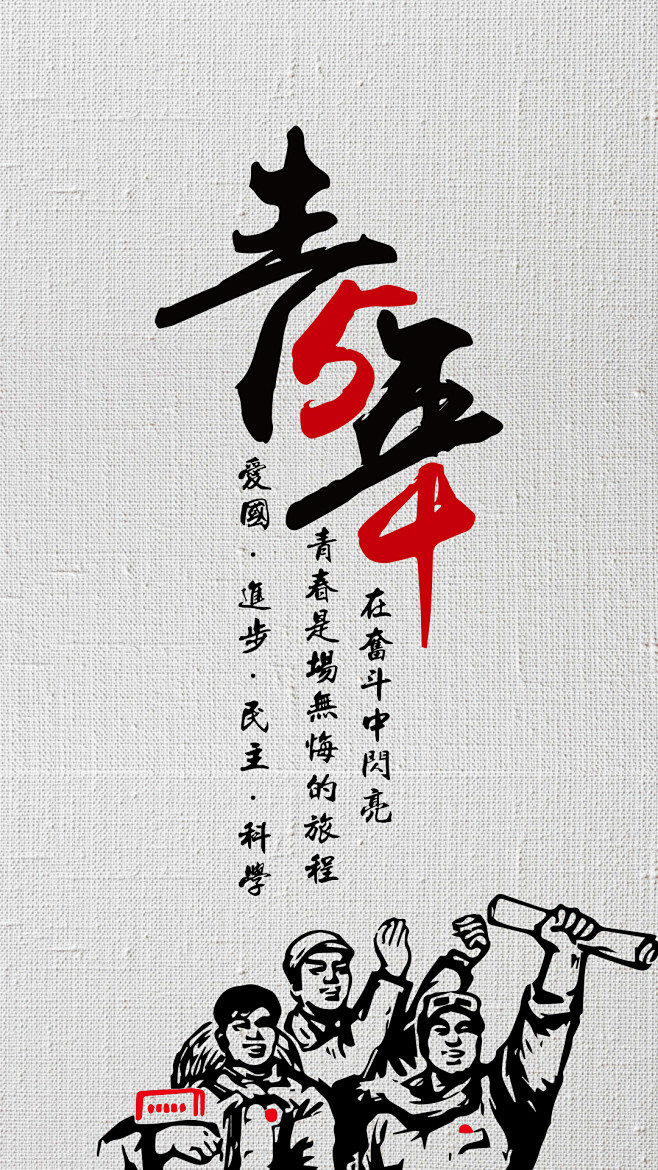 青年
5
4
愛國·進步·民主·科學
青春是場無悔的旅程
在奮斗中閃亮